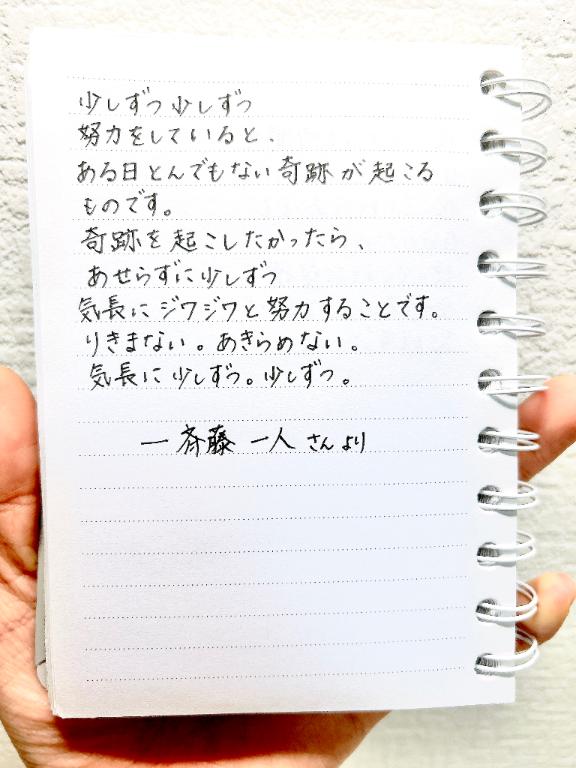 少しずつ少しずつ
努力をしていると、
ある日とんでもない奇跡が起こる
ものです。
奇跡を起こしたかったら、
あせらずに少しずつ
気長にジワジワと努力することです。
りきまない。あきらめない。
気長に少しずつ。少しずつ。
― 斉藤 一人 さんより